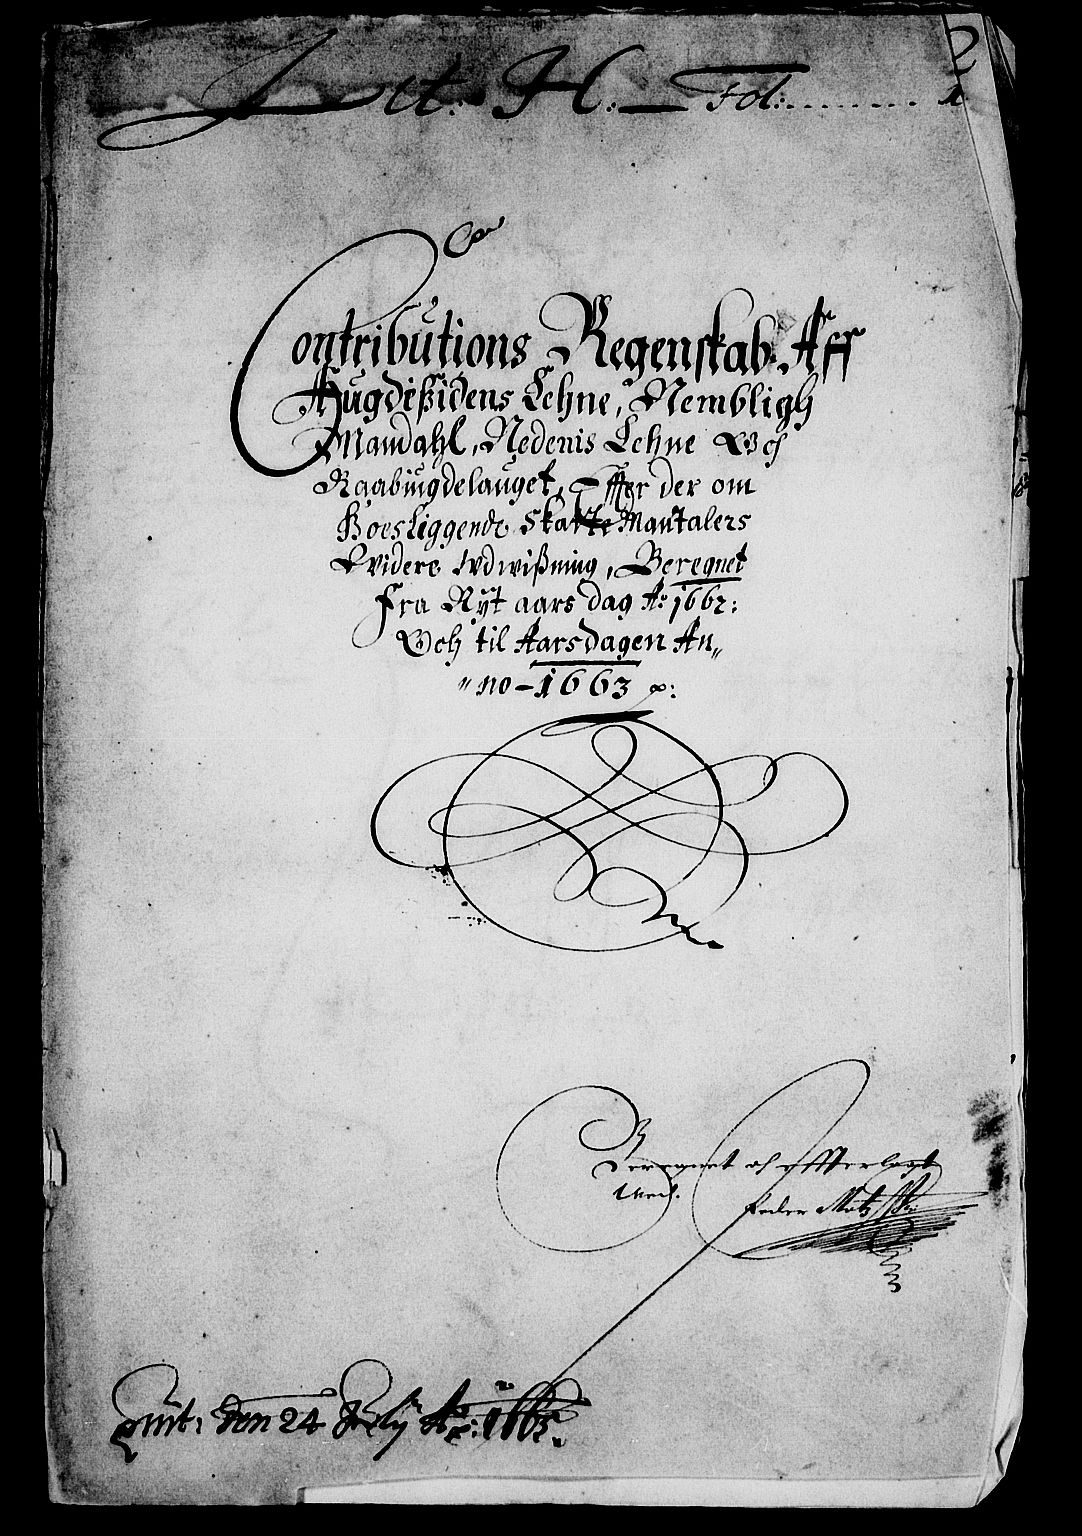 Lit: H: Fol: ........ 1
Contributions Regenskab Aff
Augdesidens Lehne, Nembligh
Mandahl, Nedenis Lehne Och
Raabÿgdelauget, Effter der om
Hoesliggende Skatte Mantalers
Videre Udwißning, Beregnet
Fra Nyt aars dag A: 1662:
Och til Aarsdagen An„
„no – 1663 p:
Beregnet och offuerlagt
Ved.
Peder Matz
qvit: den 24 July A: 1665.